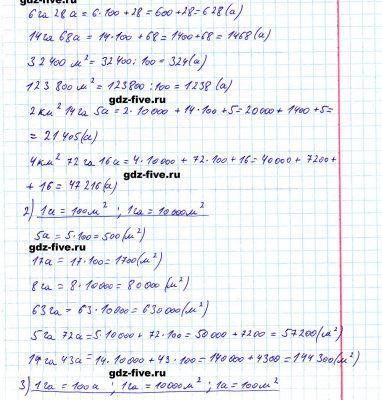 6 га 28 а = 6·100 + 28 = 600 + 28 = 628 (а)
gdz-five.ru
14 га 68 а = 14·100 + 68 = 1400 + 68 = 1468 (а)
32400 м² = 32400 : 100 = 324 (а)
123 800 м² = 123800 : 100 = 1238 (а)
gdz-five.ru
2 км² 14 га 5а = 2·10000 + 14·100 + 5 = 20000 + 1400 + 5 =
= 21405 (а)
4 км² 72 га 16 а = 4·10000 + 72·100 + 16 = 40000 + 7200 +
gdz-five.ru
+ 16 = 47216 (а)
2) 1а = 100 м² ; 1га = 10000 м²
5а = 5·100 = 500 (м²)
gdz-five.ru
17а = 17·100 = 1700 (м²)
8 га = 8·10000 = 80000 (м²)
63 га = 63·10000 = 630000 (м²)
5 га 72а = 5·10000 + 72·100 = 50000 + 7200 = 57200 (м²)
14 га 43а = 14·10000 + 43·100 = 140000 + 4300 = 144300 (м²)
gdz-five.ru
3) 1га = 100а ; 1га = 10000 м² ; 1а = 100 м²